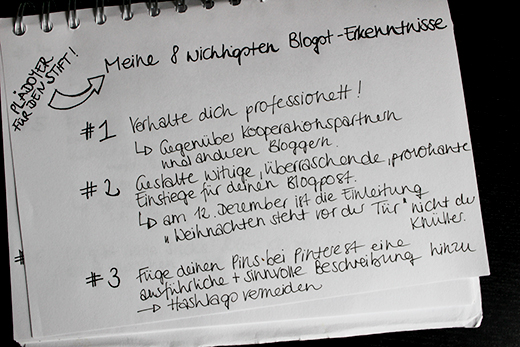 PLÄDOYER
FÜR DEN STIFT!
Meine 8 wichtigsten Blogst-Erkenntnisse
#1 Verhalte dich professionell!
↳ Gegenüber Kooperationspartnern
und anderen Bloggern.
#2 Gestalte witzige, überraschende, provokante
Einstiege für deinen Blogpost.
↳ am 12. Dezember ist die Einleitung
"Weihnachten steht vor der Tür" nicht der
Knüller.
#3 Füge deinen Pins bei Pinterest eine
ausführliche + sinnvolle Beschreibung hinzu
→ Hashtags vermeiden